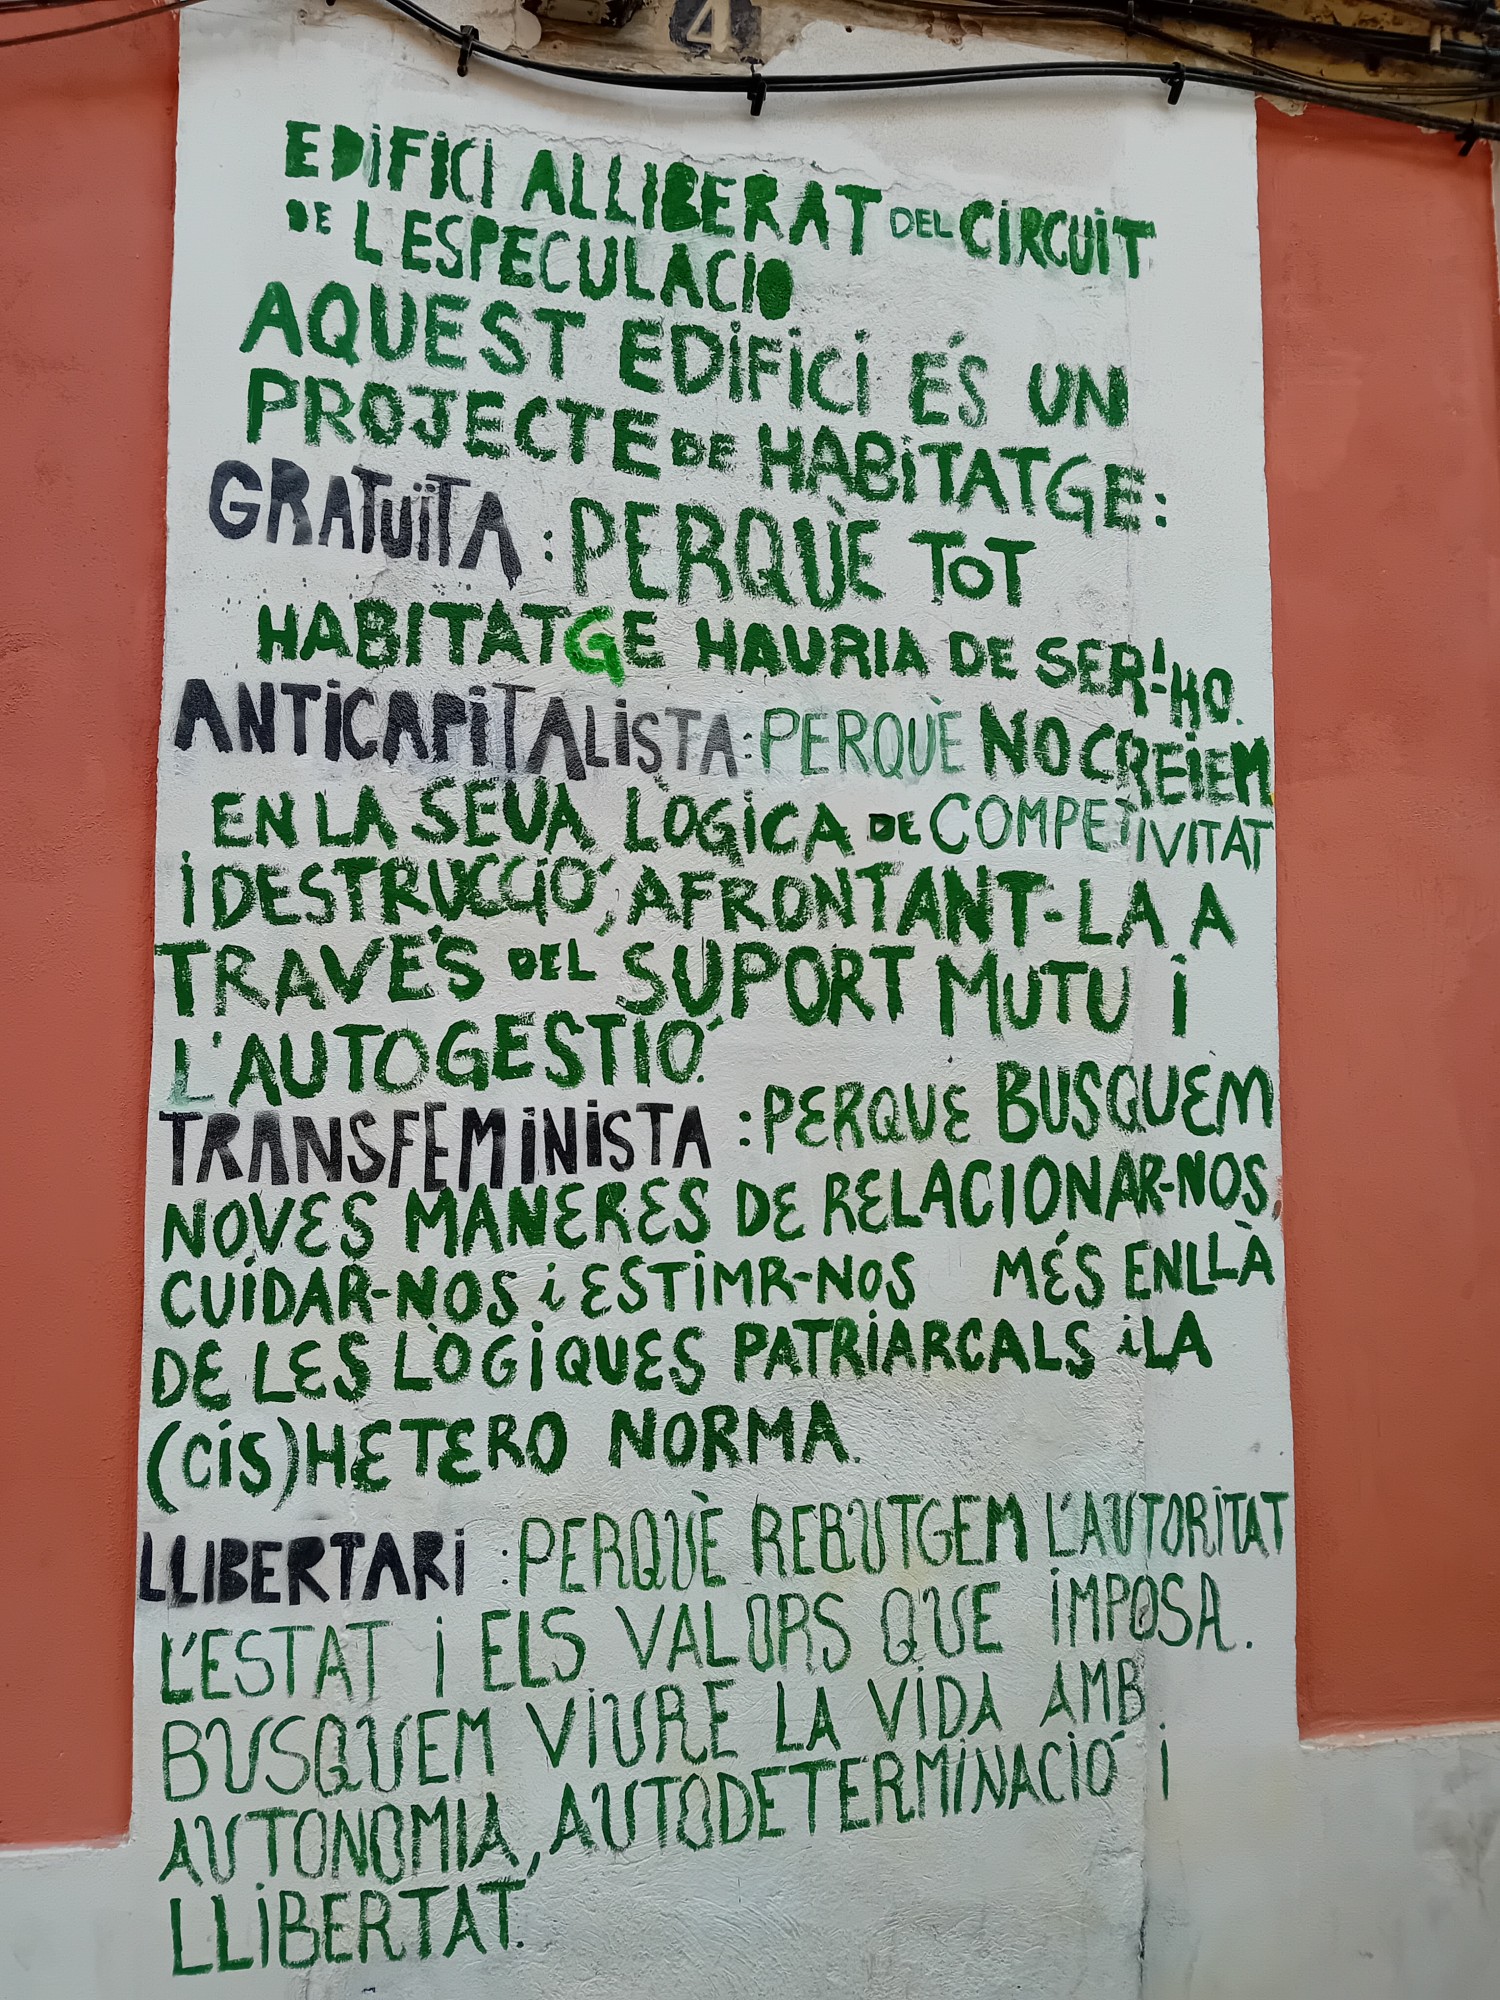 4
EDIFICI ALLIBERAT DEL CIRCUIT
DE L ESPECULACIO
AQUEST EDIFICI ÉS UN
PROJECTE DE HABITATGE:
GRATUÏTA : PERQUÈ TOT
HABITATGE HAURIA DE SER-HO.
ANTICAPITALISTA: PERQUÈ NO CREIEM
EN LA SEUA LÒGICA DE COMPETIVITAT
I DESTRUCCIÓ, AFRONTANT-LA A
TRAVÉS DEL SUPORT MUTU I
L'AUTOGESTIÓ.
TRANSFEMINISTA : PERQUÈ BUSQUEM
NOVES MANERES DE RELACIONAR-NOS,
CUIDAR-NOS I ESTIMR-NOS MÉS ENLLÀ
DE LES LÒGIQUES PATRIARCALS I LA
(CIS)HETERO NORMA.
LLIBERTARI : PERQUÈ REBUTGEM L'AUTORITAT
L'ESTAT I ELS VALORS QUE IMPOSA.
BUSQUEM VIURE LA VIDA AMB
AUTONOMIA, AUTODETERMINACIÓ I
LLIBERTAT.